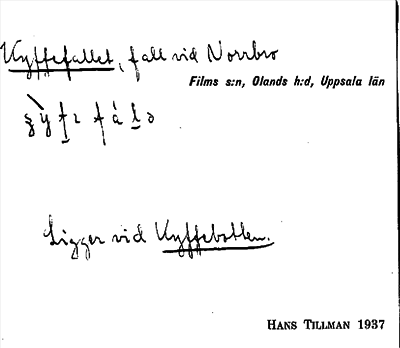 Kyffefallet, fall vid Norrbro
Films s:n, Olands h:d, Uppsala län
Ligger vid Kyffebotten.
HANS TILLMAN 1937